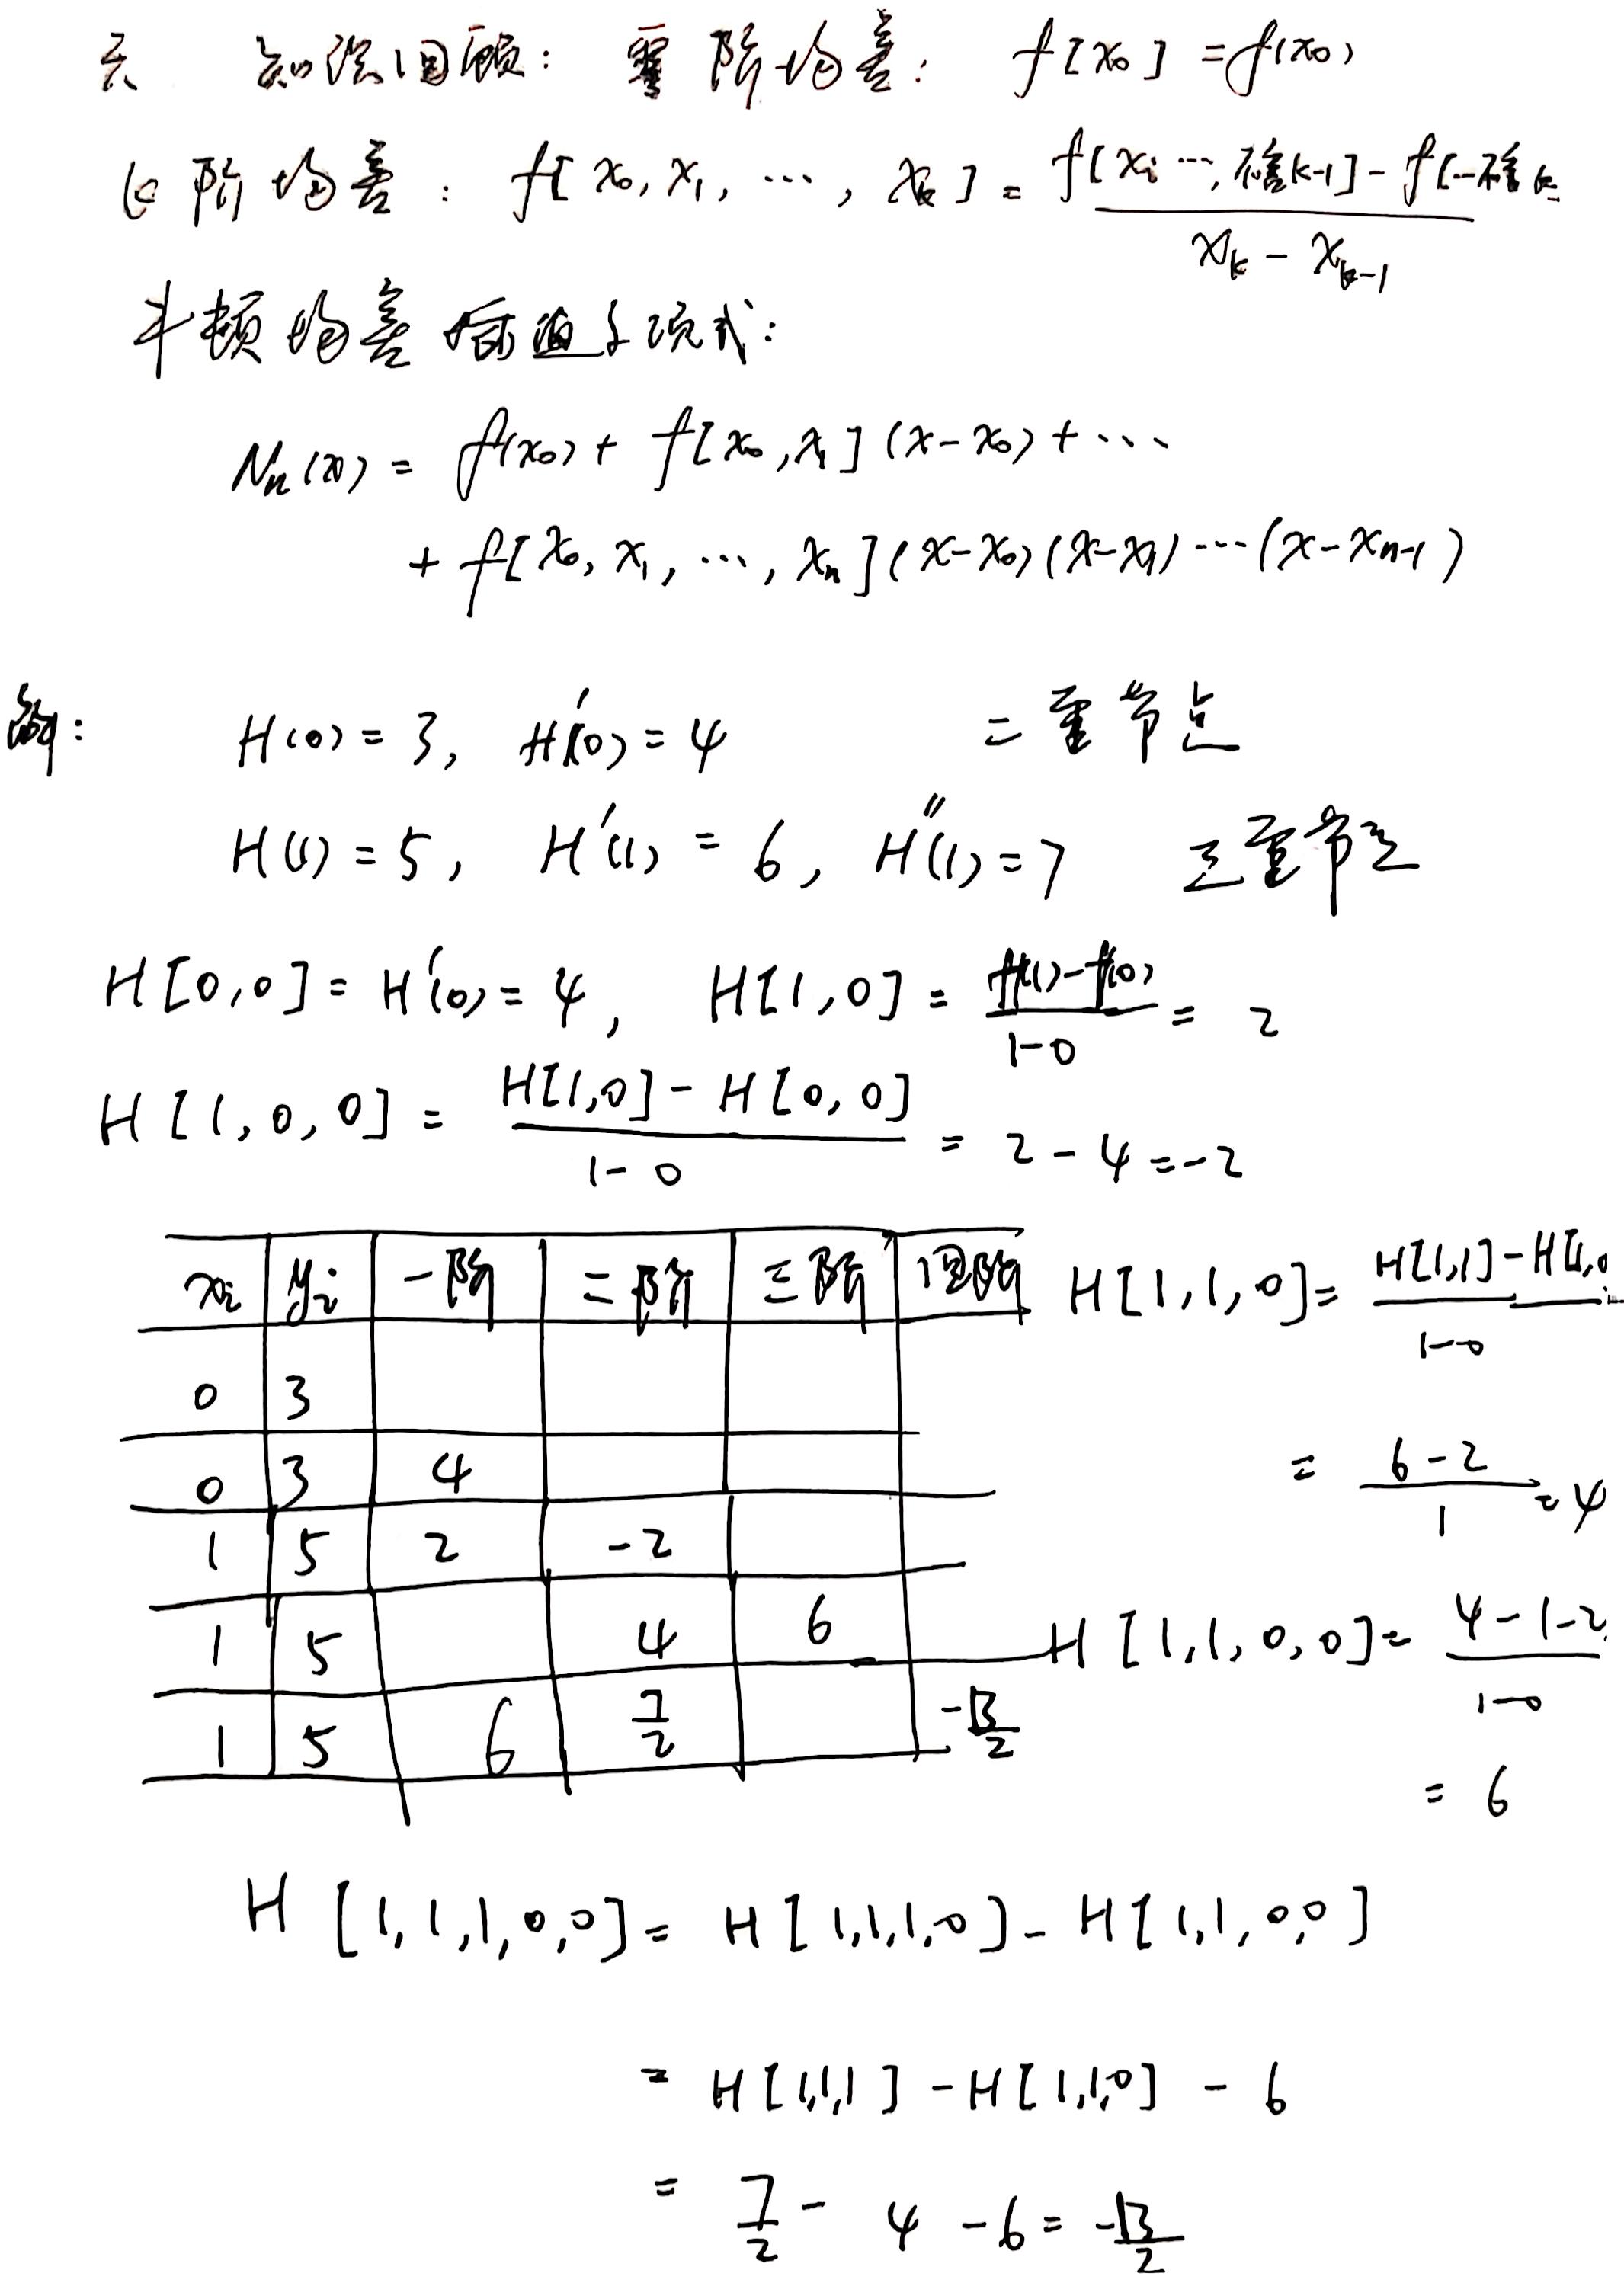 知识回顾: 零阶均差: f[x₀] = f(x₀)
k阶均差: f[x₀, x₁, …, xₖ] = (f[xᵢ …, 不含k-1] - f[…不含k) / (xₖ - xₖ₋₁)
牛顿均差插值多项式:
Nₙ(x) = f(x₀) + f[x₀, x₁](x-x₀) + …
+ f[x₀, x₁, …, xₙ](x-x₀)(x-x₁)…(x-xₙ₋₁)
例: H(0) = 3, H'(0) = 4 二重节点
H(1) = 5, H'(1) = 6, H''(1) = 7 三重节点
H[0,0] = H'(0) = 4, H[1,0] = (f(1)-f(0)) / (1-0) = 2
H[1,0,0] = (H[1,0] - H[0,0]) / (1-0) = 2-4 = -2
xᵢ yᵢ 一阶 二阶 三阶 四阶
0 3
0 3 4
1 5 2 -2
1 5 4 6
1 5 6 7/2 -13/2
H[1,1,0] = (H[1,1] - H[1,0 / (1-0)
= (6-2) / 1 = 4
H[1,1,0,0] = (4-(-2) / (1-0)
= 6
H[1,1,1,0,0] = H[1,1,1,0] - H[1,1,0,0]
= H[1,1,1] - H[1,1,0] - 6
= 7/2 - 4 - 6 = -13/2